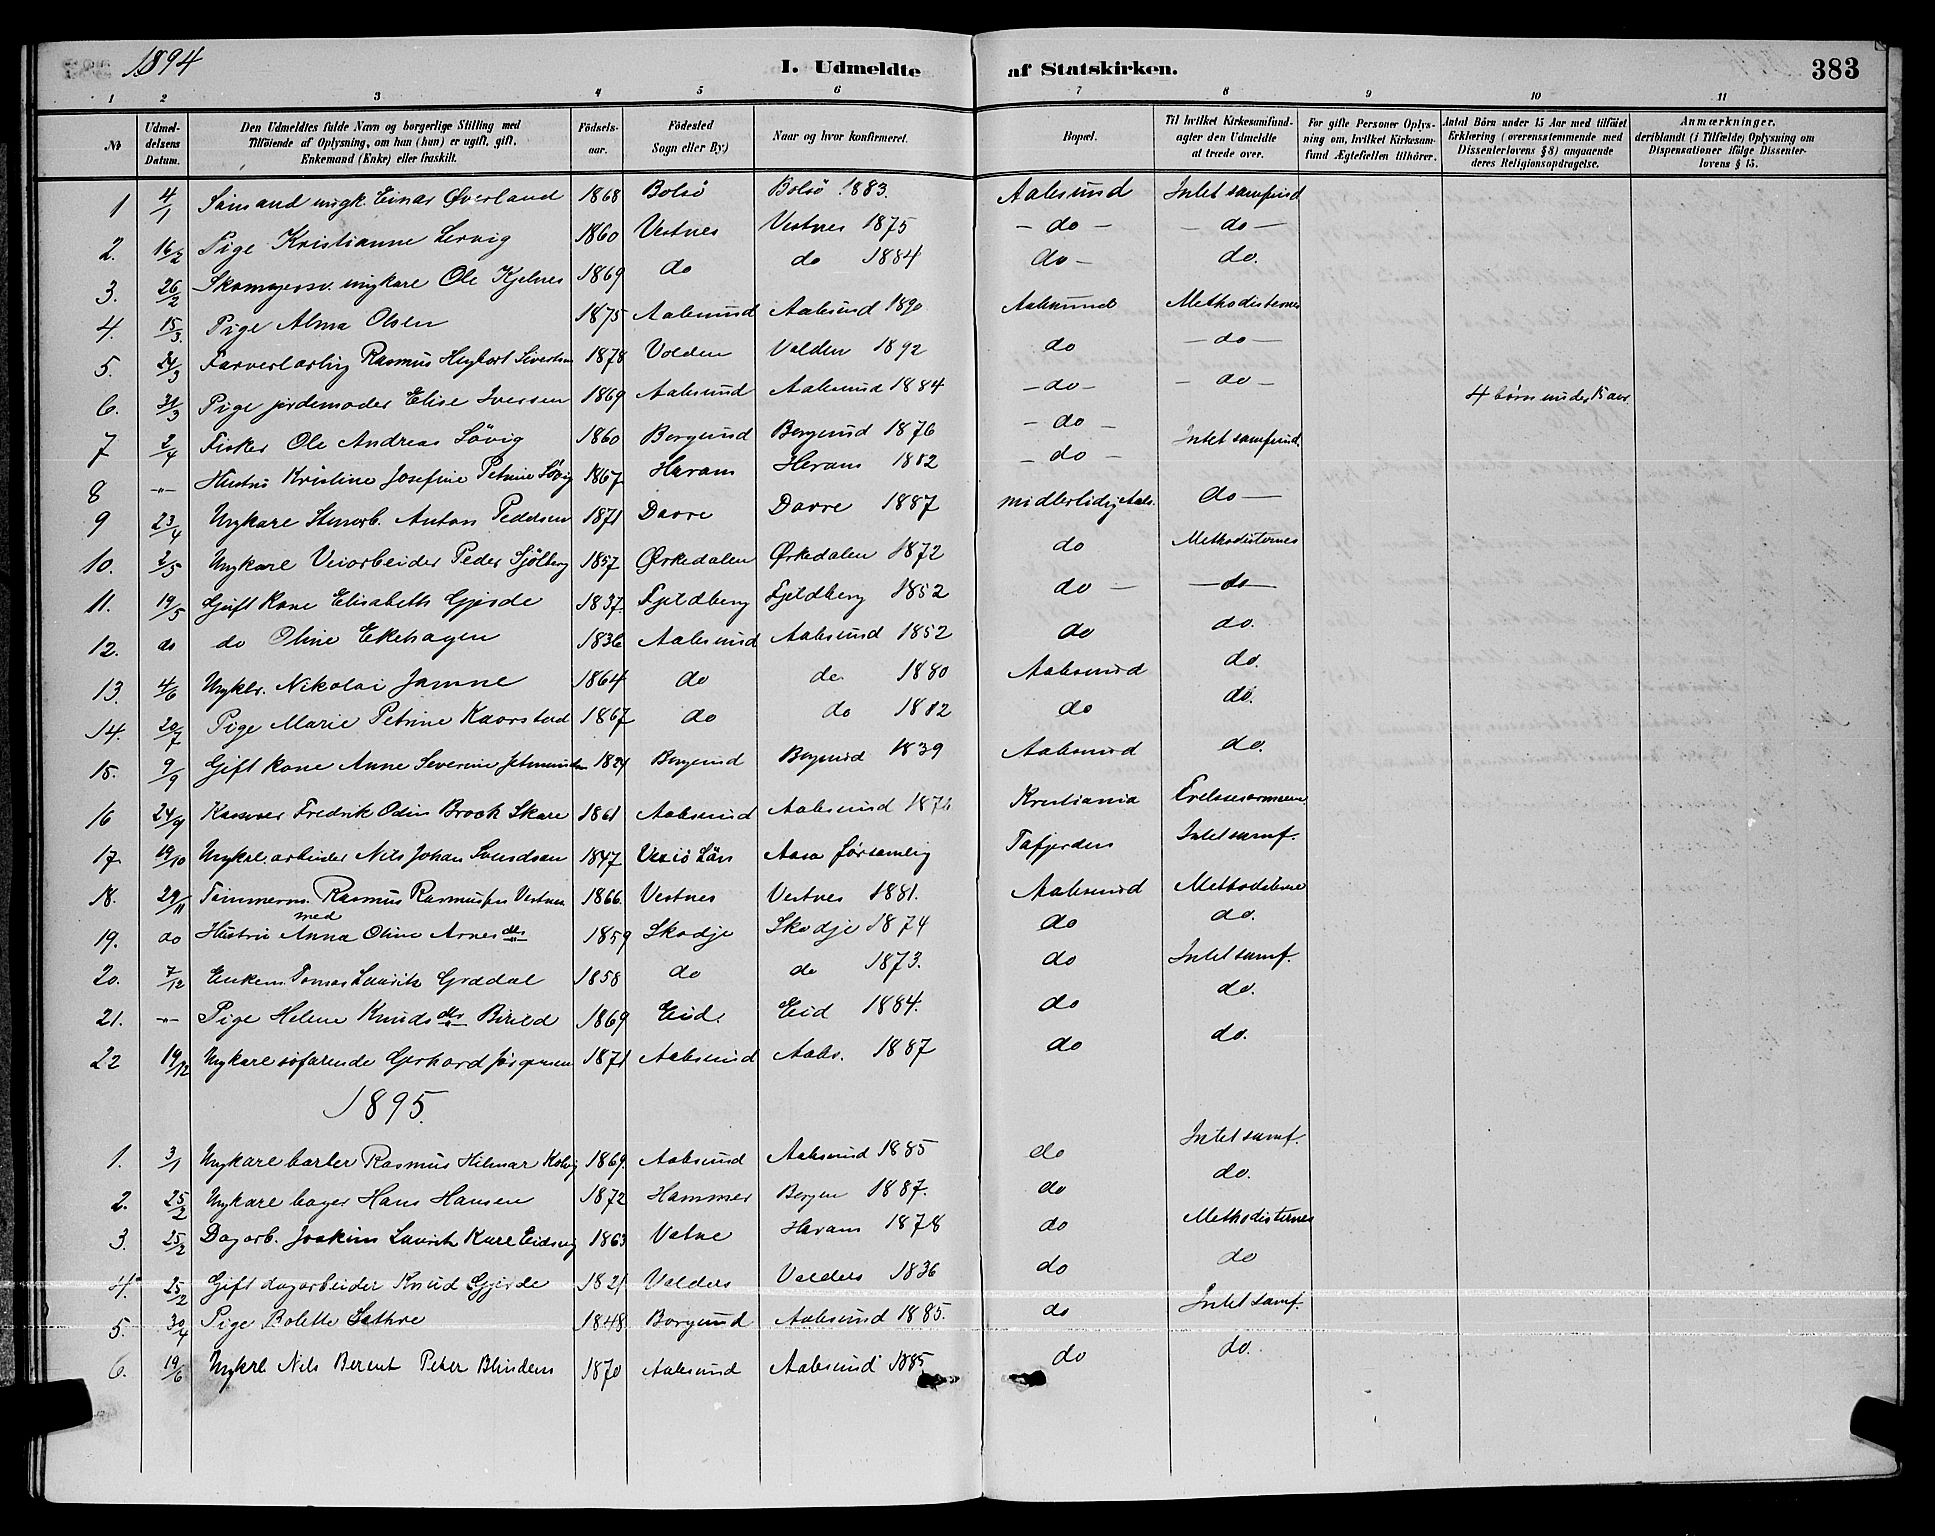 1894
I. Udmeldte af Statskirken.
383
1 2 3 4 5 6 7 8 9 10 11
№
Udmel-
delsens
Datum.
Den Udmeldtes fulde Navn og borgerlige Stilling med
Tilføiende af Oplysning, om han (hun) er ugift, gift,
Enkemand (Enke) eller fraskilt.
Fødsels-
aar.
Fødested
Sogn eller By)
Naar og hvor konfirmeret.
Bopæl.
Til hvilket Kirkesamfund-
agter den Udmeldte
at træde over.
For gifte Personer Oplys-
ning om, hvilket Kirkesam-
fund Ægtefællen tilhører.
Antal Börn under 15 Aar med tilføiet
Erklæring (overensstemmende med
Dissenterlovens §8) angaaende
deres Religionsopdragelse.
Anmærkninger,
deriblandt (i Tilfælde) Oplysning om
Dispensationer ifølge Dissenter-
lovens § 15.
1 4/1 Sömand ungk. Einar Øverland 1868 Bolsö Bolsö 1883. Aalesund Intet samfund
2. 16/2 Pige Kristianne Lervig 1860 Vestnes Vestnes 1875 - do - - do -
3. 26/2 Skomagersv. ungkare Ole Kjelnes 1869 do do 1884 do - do.
4. 15/3. Pige Alma Olsen 1875 Aalesund Aalesund 1890 Aalesund Methodisternes
5. 24/3 Farverlærling Rasmus Sivertsen 1878 Volden Volden 1892 do - do -
6. 31/3 Pige jordemoder Elise Iversen 1869 Aalesund Aalesund 1884 - do - - do - 4 börn under 15 aar.
7 2/4 Fisker Ole Andreas Lövig 1860 Borgund Borgund 1876 - do - Intet samfund.
8 -"- Hustru Kristine Josefine Petrine Lövig 1867 Haram Heram 1882 - do -
9 23/4 Ungkare Stenarb. Anton Pedersen 1871 Dovre Dovre 1887 midlertidig Aals. do -
10. 2/5 Ungkare Veiarbeider Peder Sjölberg 1857 Ørkedalen Ørkedalen 1872 do Methodisternes
11. 19/5 Gift kone Elisabeth Gjerde 1837. Fjeldberg Fjeldberg 1852 do - - do -
12. do do Oline Ekehagen 1836 Aalesund Aalesund 1852 do do.
13. 4/6 Ungkr. Nikolai Jamne 1864 do do 1880 Aalesund do.
14. 20/7 Pige Marie Petrine Kaarstad 1867 do do 1882 do do.
15. 9/9 Gift kone Anne Severine 1824 Borgund Borgund 1839 Aalesund do.
16 24/9 Fredrik Odin Brook Skare 1861 Aalesund Aalesund 1876 Kristiania Frelsesarmeen
17. 19/10 Ungkrl arbeider Nils Johan Svendsen 1847 Vexiö Län Aasa församling Tafjorden Intet samf.
18. 29/11 Tömmerm. Rasmus Rasmussen Vestnes 1866. Vestnes Vestnes 1881. Aalesund Methodisterne
med
19. do Hustru Anna Oline Arnesdtr 1859 Skodje Skodje 1874 do do.
20. 7/12 Enkem. Tomas Laurits Grødal 1858 do do 1873. do Intet samf.
21. -"- Pige Helene Knudsdtr Bireld 1869 Eid. Eid 1884. do do.
22 19/12 Ungkare söfarende Gerhard Jörgensen 1871 Aalesund Aales. 1887 do do.
1895.
1. 3/1 Ungkare barber Rasmus Hilmar 1869. Aalesund Aalesund 1885 do Intet samf.
2. 25/2 Ungkare bager Hans Hansen 1872 Hammer Bergen 1887. do do.
3. 25/2 Dagarb. Joakim Laurits Kare Eidsvig 1863 Vatne Haram 1878 do Methodisternes
4. 25/2 Gift dagarbeider Knud Gjerde 1821 Valders Valders 1836 do do
5. 30/4 Pige Bolette Sæthre 1848 Borgund Aalesund 1885. do Intet samf.
6. 19/6 Ungkrl Nils Berent Peter Blindem 1870 Aalesund Aalesund 1885 do do.